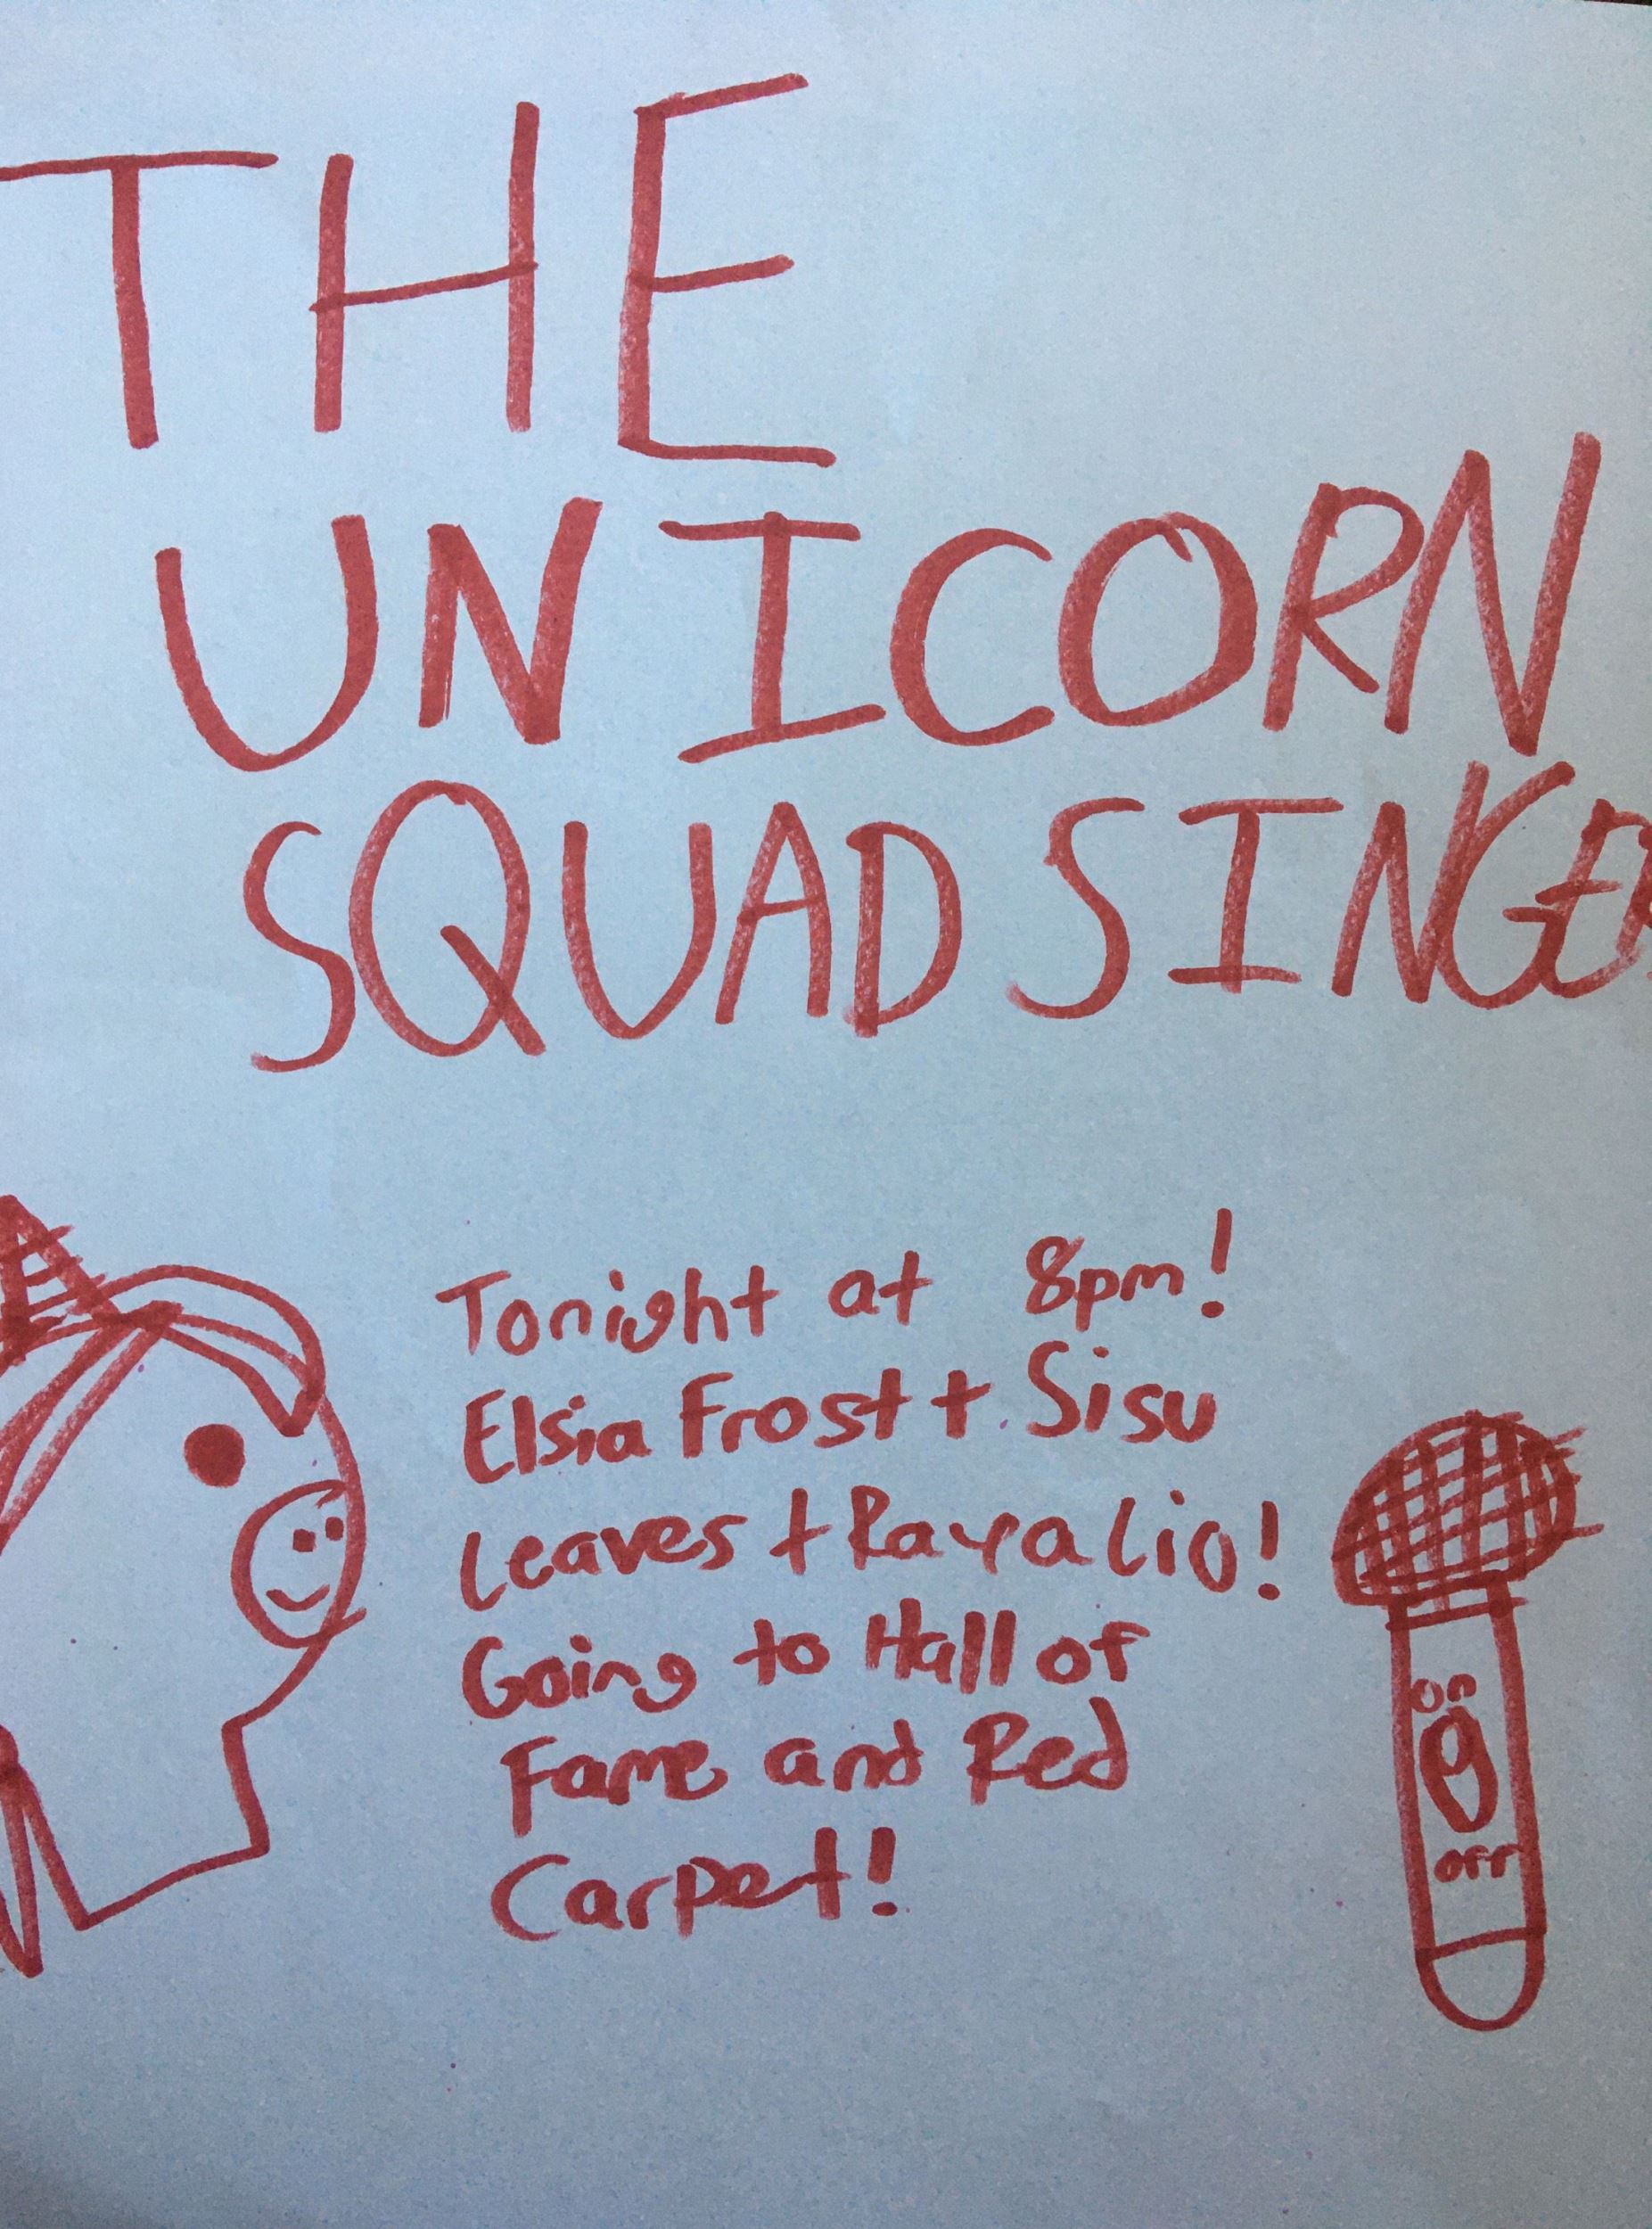 THE
UNICORN
SQUAD SINGER
Tonight at 8pm!
Elsia Frost + Sisu
Leaves + Raya Lio!
Going to Hall of
Fame and Red
Carpet!
on
off